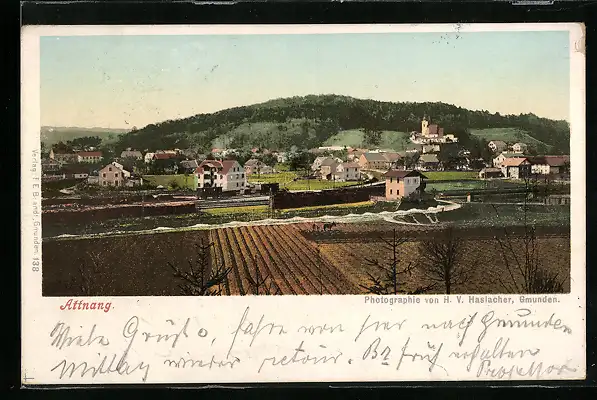 Verlag F. E. Brandt, Gmunden. 138
Attnang.
Photographie von H. V. Haslacher, Gmunden.
Viele Grüße, fahre von hier nach Gmunden
Mittag wieder retour. früh erhalten